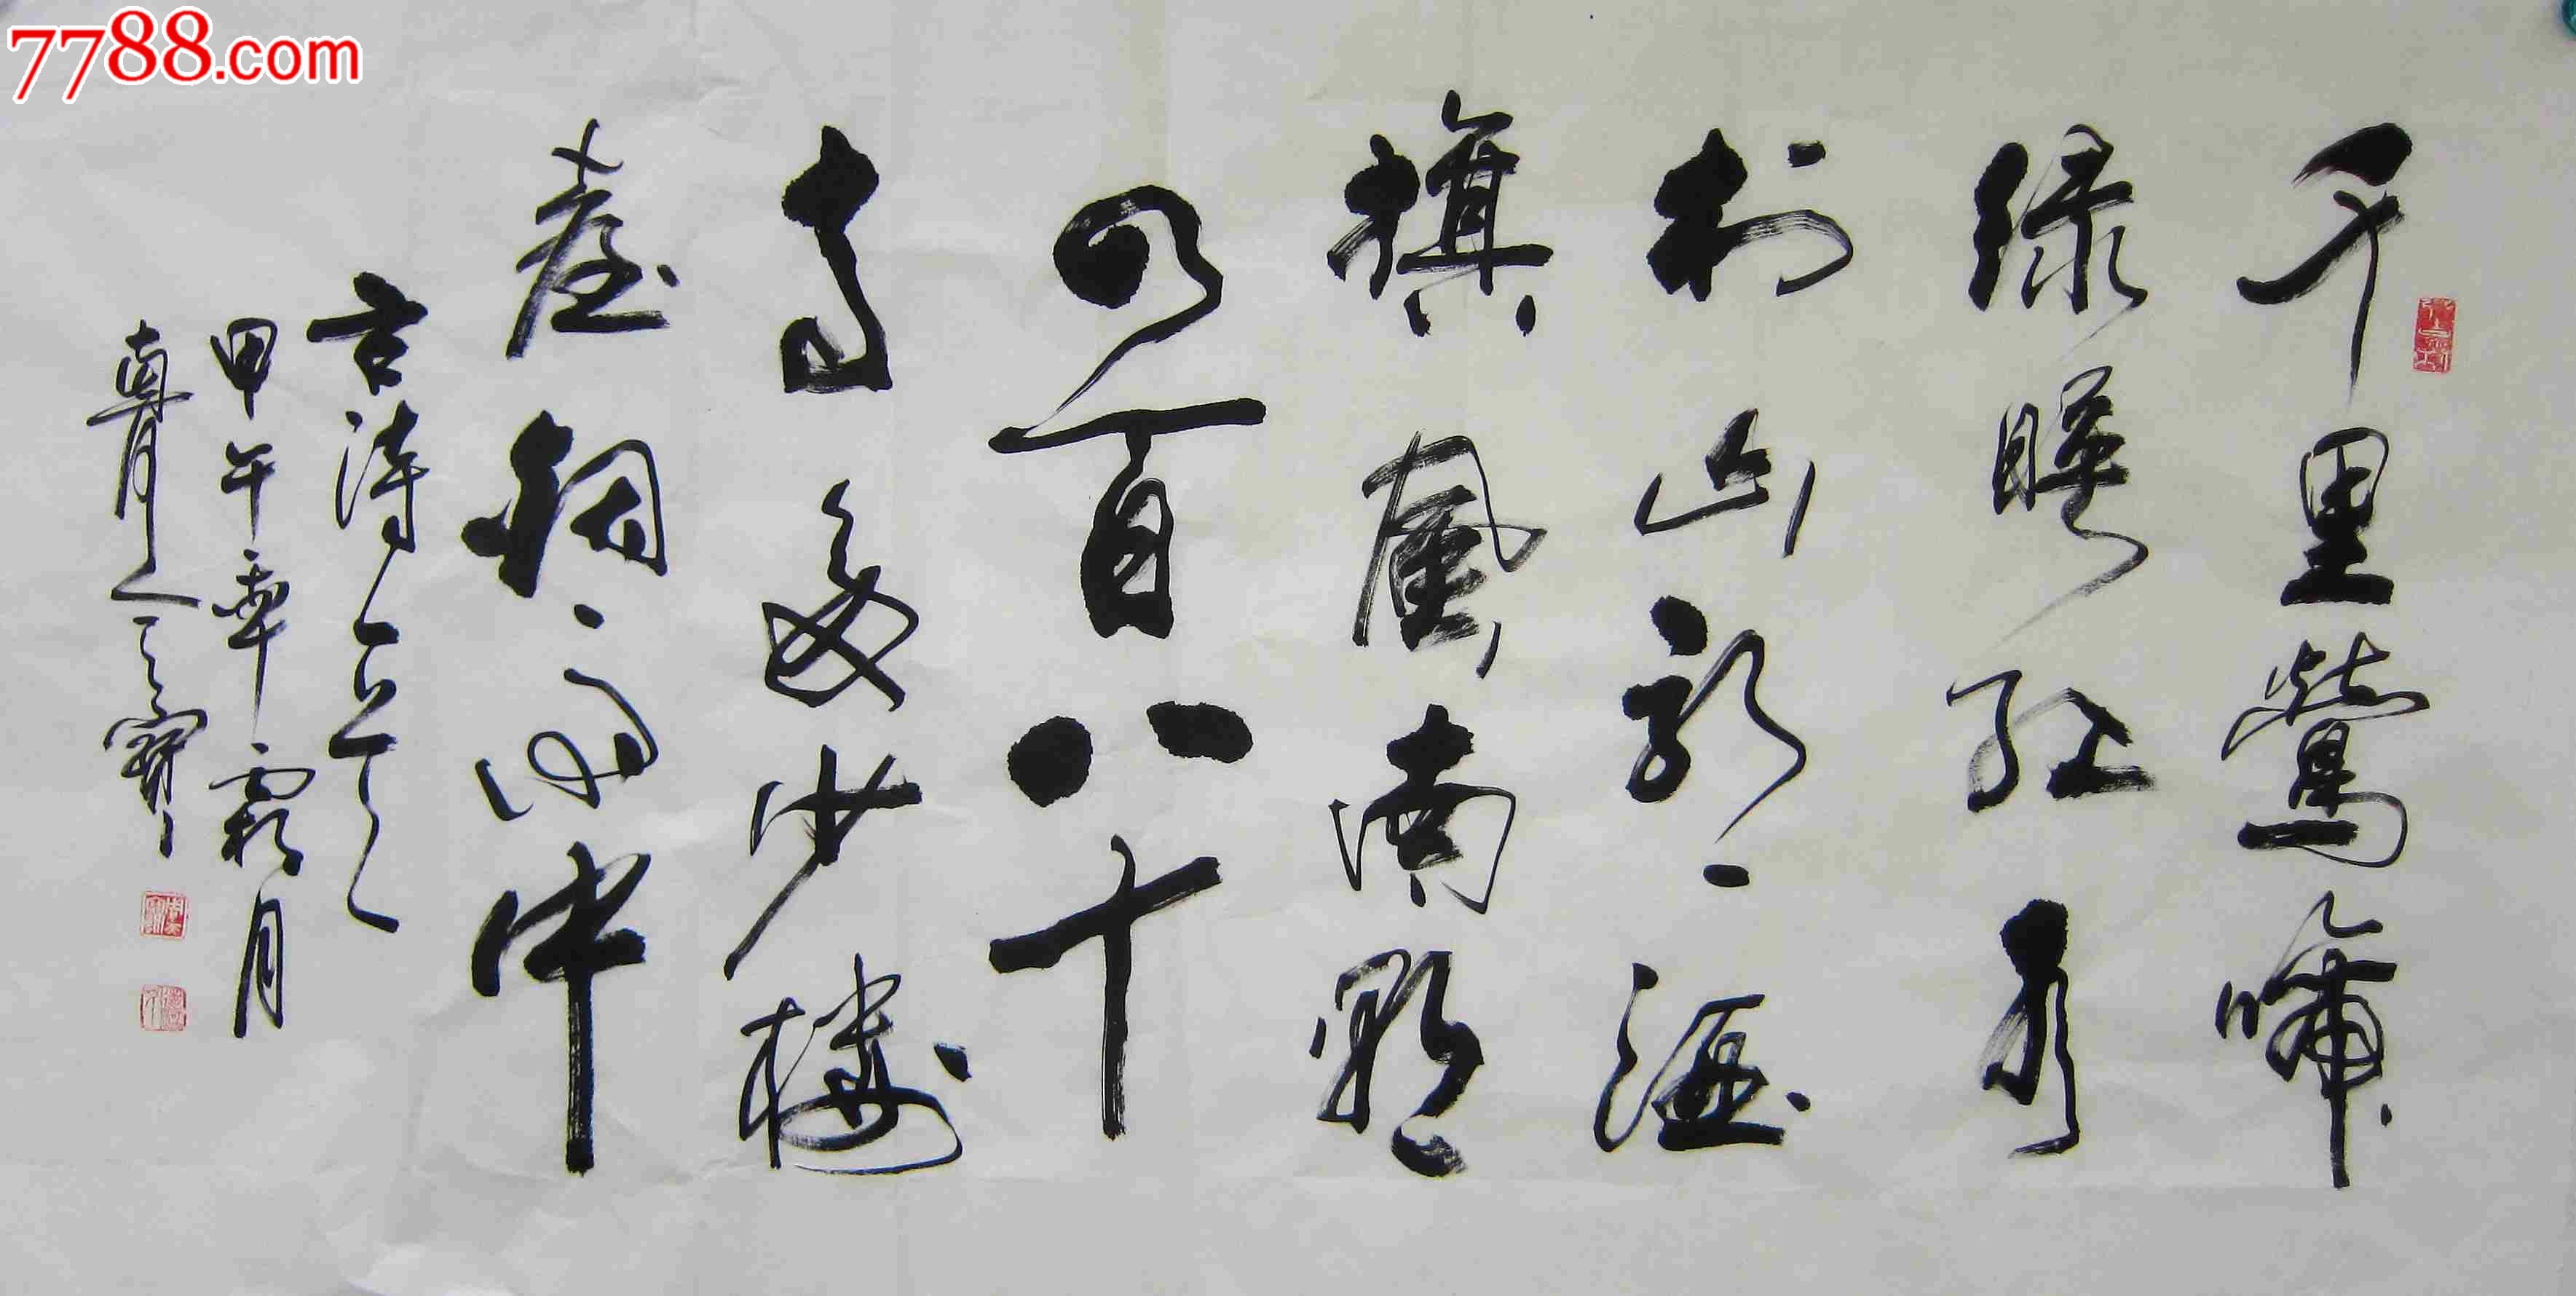 7788.com
千里鶯啼
绿暎红水
村山郭酒
旗風南朝
四百八十
寺多少樓
臺烟雨中
古诗一首
甲午年霜月